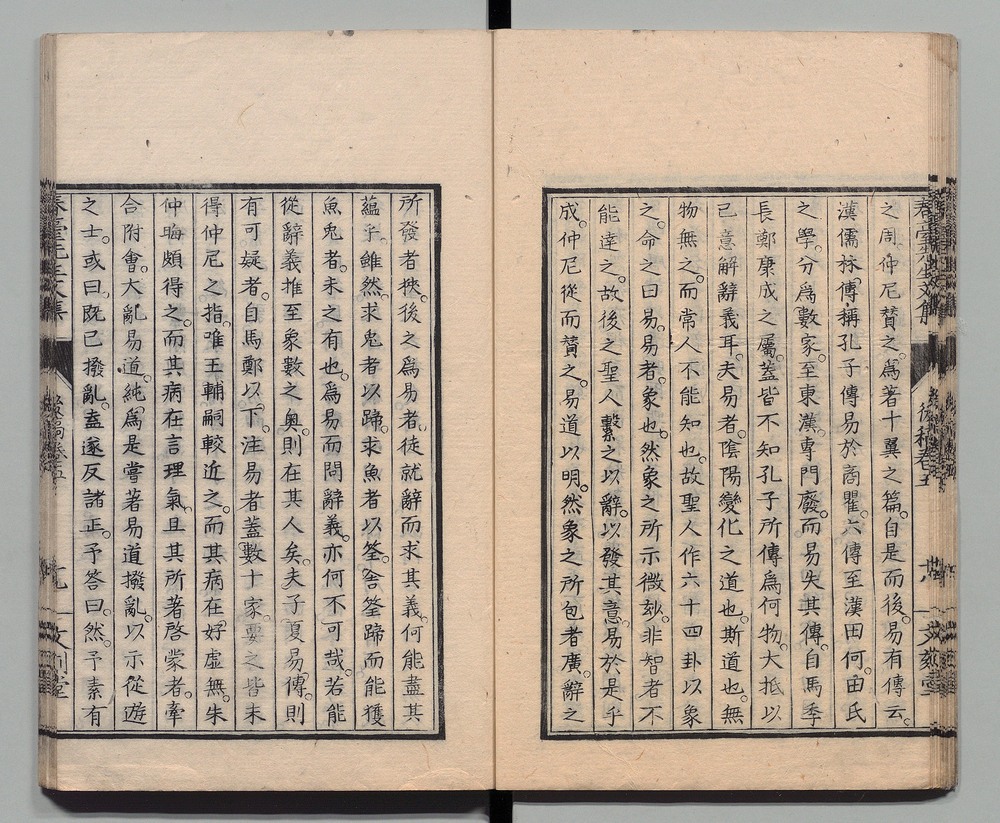 之周。仲尼贊之。爲著十翼之篇。自是而後。易有傳云。
漢儒林傳稱孔子傳易於商瞿。六傳至漢田何。田氏
之學。分爲數家。至東漢專門廢。而易失其傳。自馬季
長鄭康成之屬。蓋皆不知孔子所傳爲何物。大抵以
己意解辭義耳。夫易者。陰陽變化之道也。斯道也。無
物無之。而常人不能知也。故聖人作六十四卦以象
之。命之曰易。易者。象也。然象之所示微玅。非智者不
能達之。故後之聖人繫之以辭。以發其意。易於是乎
成。仲尼從而贊之。易道以明。然象之所包者廣。辭之
所發者狹。後之爲易者。徒就辭而求其義。何能盡其
蘊乎。雖然。求兎者以蹄。求魚者以筌。舎筌蹄而能獲
魚兎者。未之有也。爲易而問辭義。亦何不可哉。若能
從辭義推至象數之奥。則在其人矣。夫子夏易傳。則
有可疑者。自馬鄭以下。注易者蓋數十家。要之皆未
得仲尼之指。唯王輔嗣較近之。而其病在好虚無。朱
仲晦頗得之。而其病在言理氣。且其所著啓蒙者。牽
合附會。大亂易道。純爲是嘗著易道撥亂。以示從遊
之士。或曰。既已撥亂。盍遂反諸正。予答曰。然。予素有